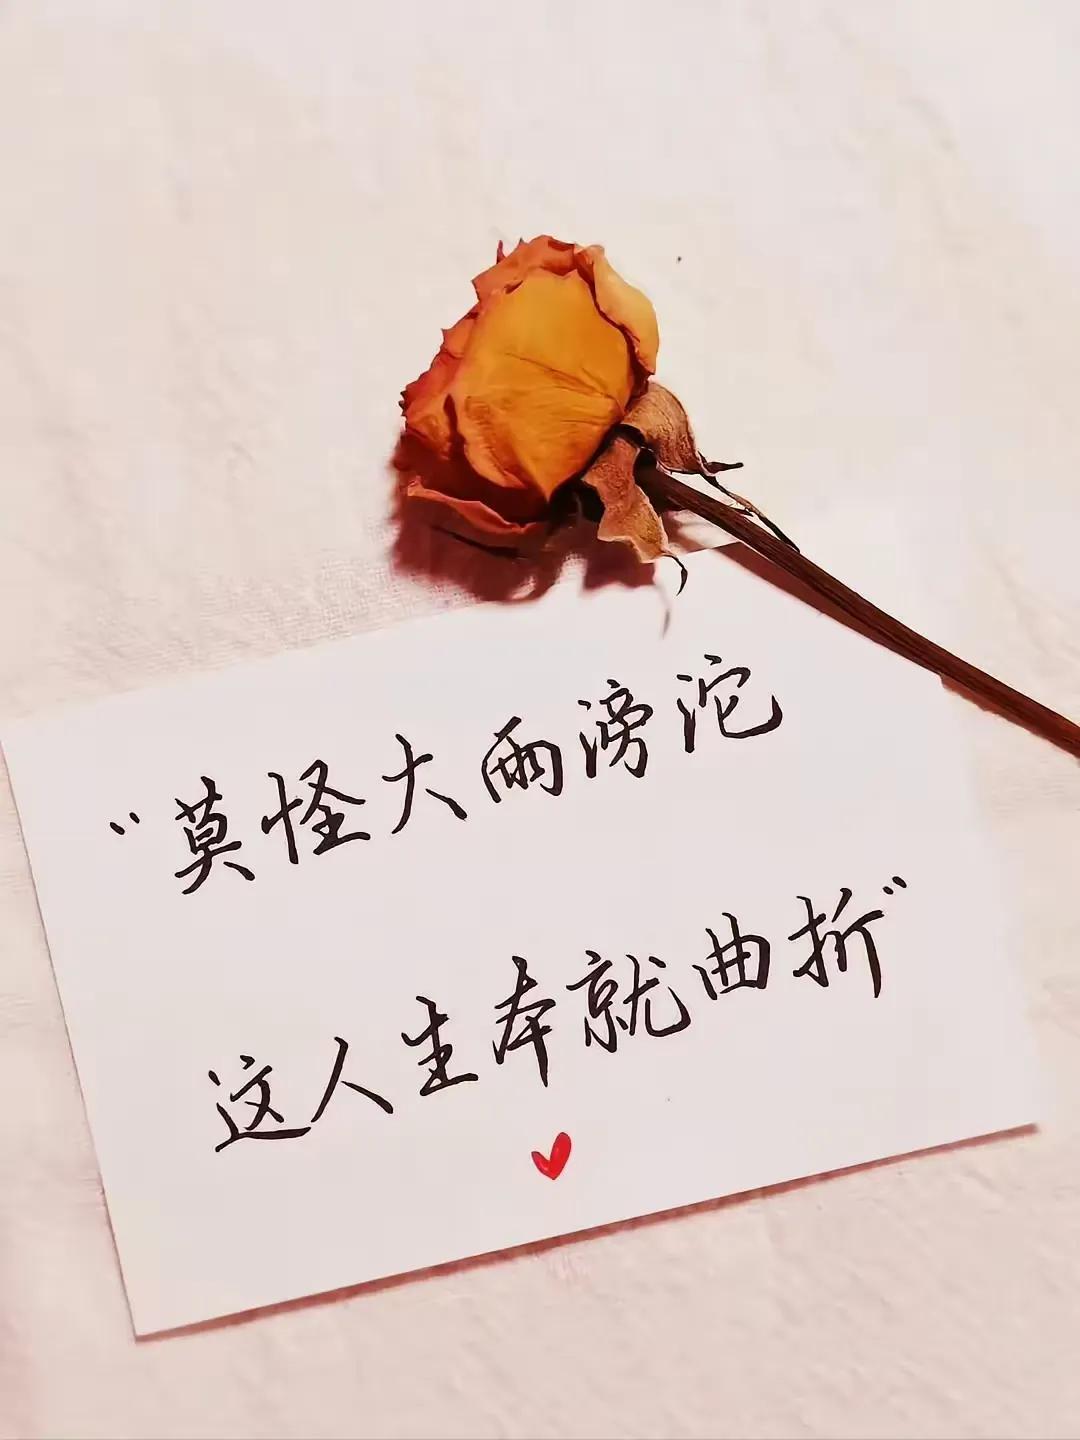 “莫怪大雨滂沱
这人生本就曲折”